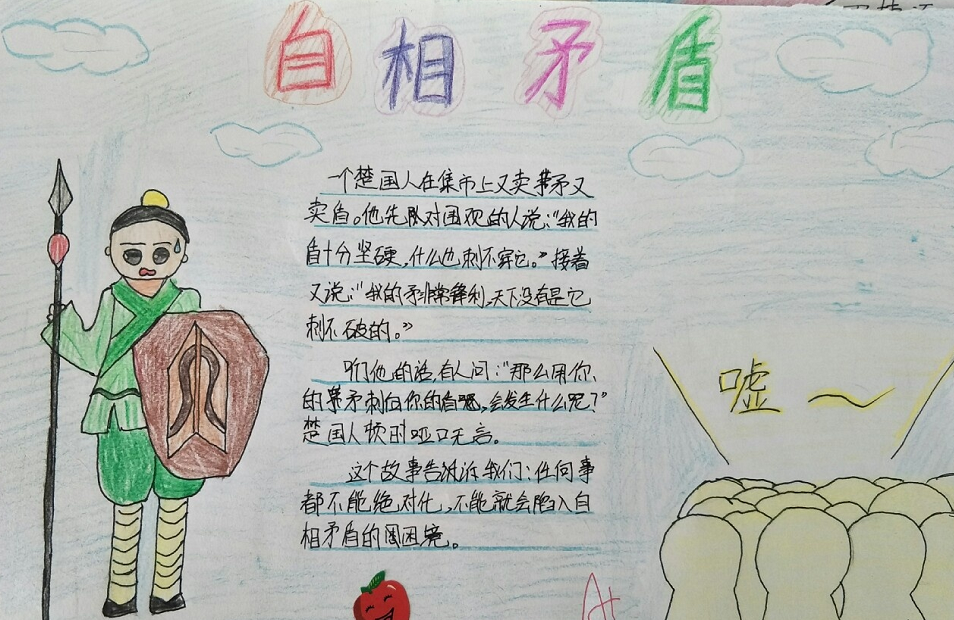 自相矛盾
一个楚国人在集市上又卖矛又
卖盾。他先对围观的人说:“我的
盾十分坚硬,什么也刺不穿它。”接着
又说:“我的矛非常锋利,天下没有是它
刺不破的。”
听他的话,有人问:“那么用你
的矛刺向你的盾,会发生什么呢?”
楚国人顿时哑口无言。
这个故事告诉我们:任何事
都不能绝对化,不能就会陷入自
相矛盾的困境。
嘘~
A+